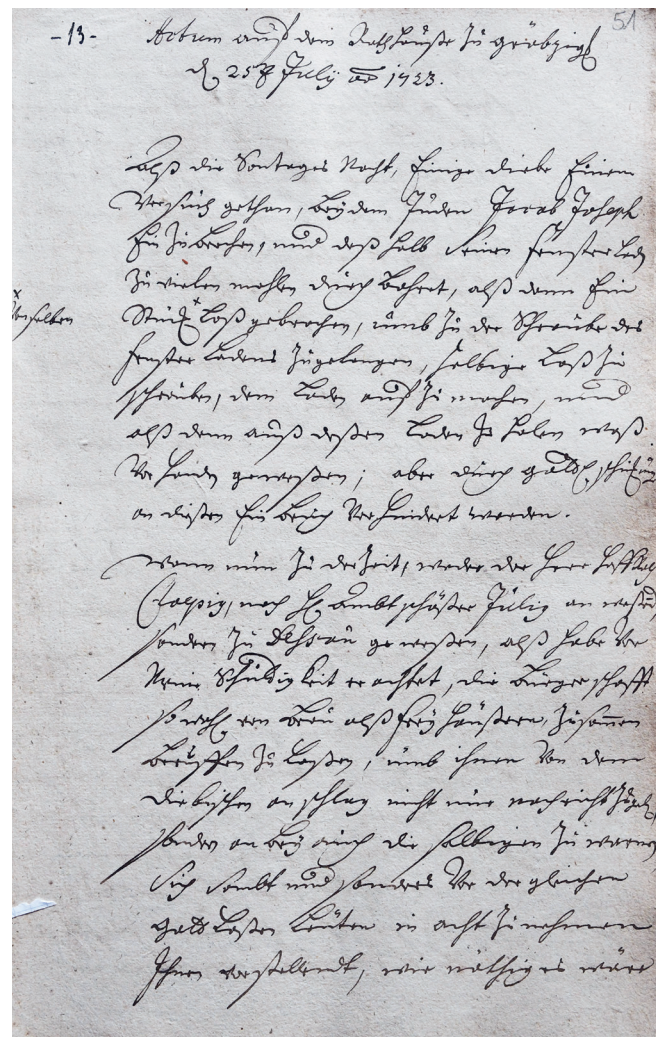 -13-
51
Actum auf dem Rathhauße zu Gröbzigk
d. 25t July ao 1723.
Alß die Sontages Nacht, Einige Diebe Einen
Versuch gethan, bey dem Juden Jacob Joseph
Ein zu brechen, und deß halb seinen Fenster Laden
zu vielen mahlen durch bohret, alß dann Ein
x
denselben
Stück x Loß gebrochen, umb zu der Schraube des
Fenster Ladens zugelangen, selbige Loß zu
schrauben, den Laden auf zu machen, und
alß denn auß deßen Laden zu holen waß
Vorhanden geweßen; aber durch göttl. schickung
an dießen Ein bruch Verhindert worden.
Wann nun zu der Zeit, weder der Herr Hoff Rath
noch H. Ambt schößer Jülig an weßend,
sondern zu Deßau geweßen, alß habe vor
meine Schuldigkeit erachtet, die Bürgerschafft
so wohl von Brau alß Frey häußern, zusammen
beruffen zu Laßen, umb ihnen von dem
diebischen anschlag nicht nur nachricht zugeben,
sondern an bey auch die selbigen zu warnen,
sich sambt und sonders vor dergleichen
gottloßen Leuten in acht zu nehmen
Ihnen vorstellendt, wie nöthig es wäre